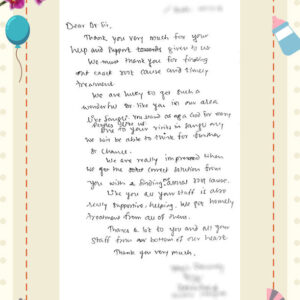 Dear Dr Sir,
Thank you very much for your
help and support towards given to us
We must thank you for finding
out exact root cause and timely
treatment.
We are lucky to get such a
wonderful Dr like you in our area
like Sangli. You stand as a god for many
people like us.
Due to your visits in Sangli only
we can be able to think for further
Dr chance.
We are really impressed when
we got the correct solution from
you with a finding correct root cause.
Like you all your staff is also
really supportive, helping. We got homely
treatment from all of them.
Thanks a lot to you and all your
staff from bottom of our heart
Thank you very much.